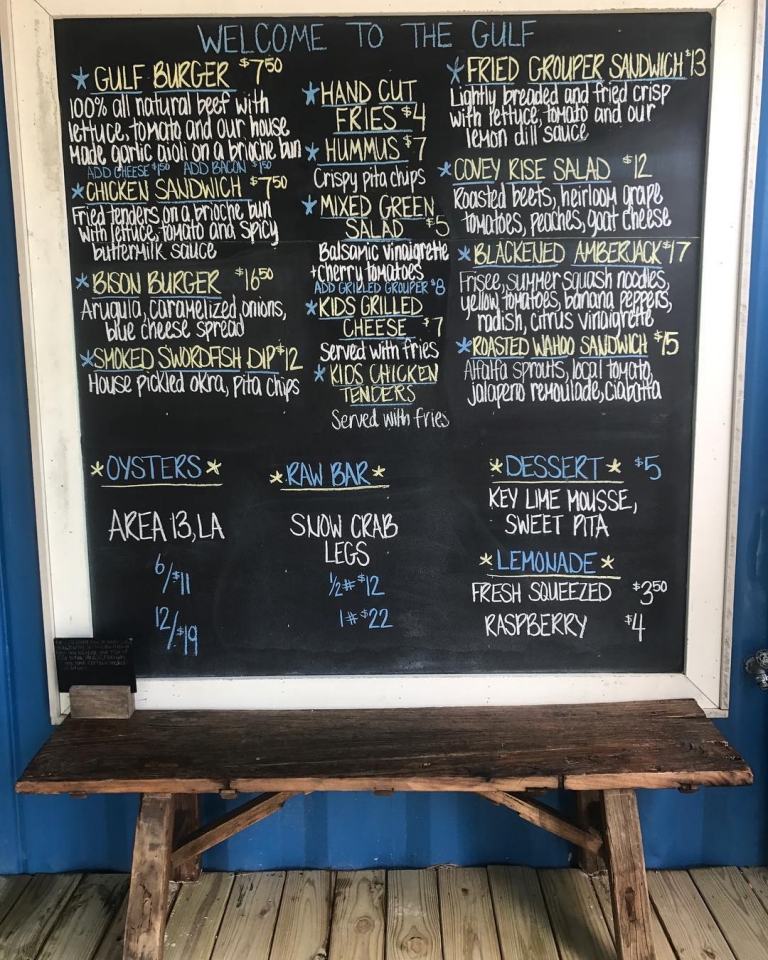 WELCOME TO THE GULF
GULF BURGER $7.50
100% all natural beef with
lettuce, tomato and our house
made garlic aioli on a brioche bun
ADD CHEESE $1.50 ADD BACON $1.50
CHICKEN SANDWICH $7.50
Fried tenders on a brioche bun
with lettuce, tomato and spicy
buttermilk sauce
BISON BURGER $16.50
Arugula, caramelized onions,
blue cheese spread
SMOKED SWORDFISH DIP $12
House pickled okra, pita chips
HAND CUT
FRIES $4
HUMMUS $7
Crispy pita chips
MIXED GREEN
SALAD $5
Balsamic vinaigrette
+cherry tomatoes
ADD GRILLED GROUPER $8
KIDS GRILLED
CHEESE $7
Served with fries
KIDS CHICKEN
TENDERS
Served with fries
FRIED GROUPER SANDWICH $13
Lightly breaded and fried crisp
with lettuce, tomato and our
lemon dill sauce
COVEY RISE SALAD $12
Roasted beets, heirloom grape
tomatoes, peaches, goat cheese
BLACKENED AMBERJACK $17
Frisee, summer squash noodles,
yellow tomatoes, banana peppers,
radish, citrus vinaigrette
ROASTED WAHOO SANDWICH $15
Alfalfa sprouts, local tomato,
jalapeno remoulade, ciabatta
OYSTERS
AREA 13, LA
6/$11
12/$19
RAW BAR
SNOW CRAB
LEGS
1/2# $12
1# $22
DESSERT $5
KEY LIME MOUSSE,
SWEET PITA
LEMONADE
FRESH SQUEEZED $3.50
RASPBERRY $4